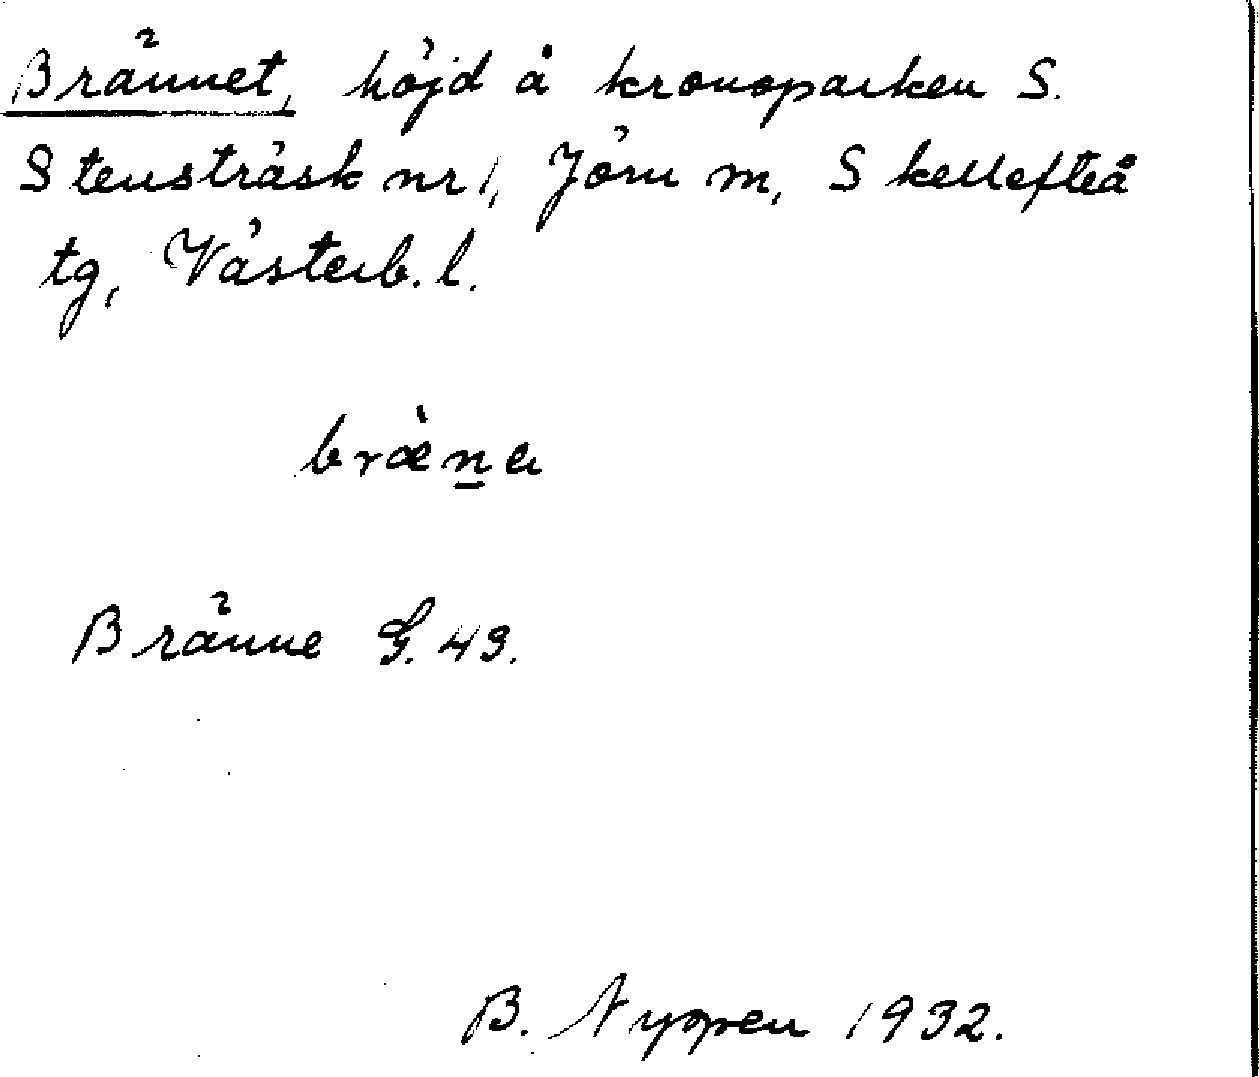 Brännet, höjd å kronoparken S.
Stensträsk nr 1, Jörn m, Skellefteå
tg, Västerb. l.
bræ̀n̲a
Bränne G. 49.
B. Nyppen 1932.